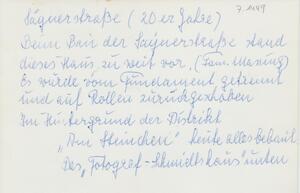 7.1449
Saynerstraße (20er Jahre)
Beim Bau der Saynerstraße stand
dieses Haus zu weit vor. (Fam.
Es wurde vom Fundament getrennt
und auf Rollen zurückgeschoben
Im Hintergrund der Distrikt
„Am Steinchen" heute alles bebaut
Das „Fotograf-Schmidtshaus" unten